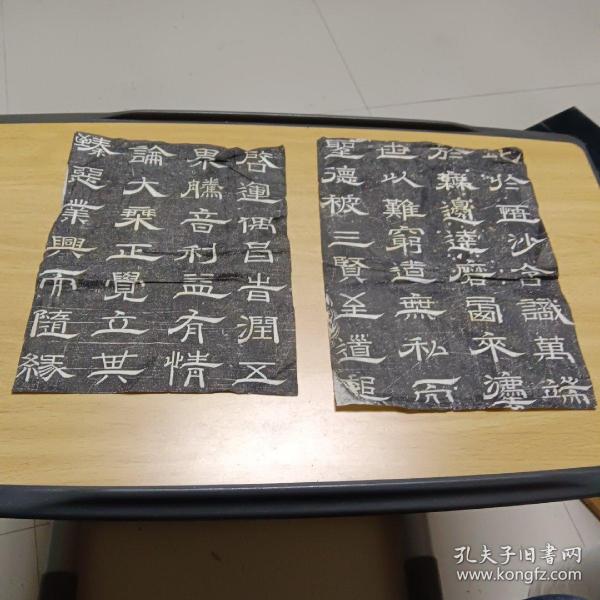 啓運偶昌旹潤五
界騰音利益有情
論大乘正覺立其
臻惡業興而隨緣
此於沙含識萬端
於無邊達磨來塵
世以難窮道無私而
聖德被三賢至道
孔夫子旧书网
www.kongfz.com